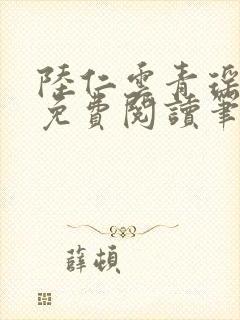 陸仁雲青瑶
免費閱讀筆
薛頓